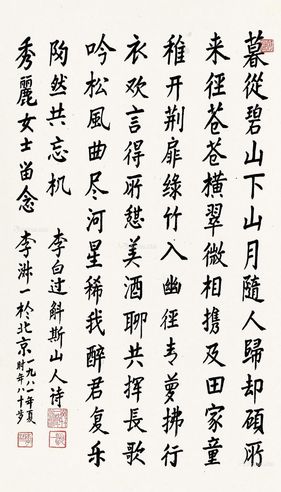 暮從碧山下山月隨人歸却顧所
来徑苍苍橫翠微相携及田家童
稚开荆扉綠竹入幽徑青萝拂行
衣欢言得所憩美酒聊共挥長歌
吟松風曲尽河星稀我醉君复乐
陶然共忘机 李白过斛斯山人诗
秀麗女士留念 李淑一於北京
一九八一年夏
时年八十岁